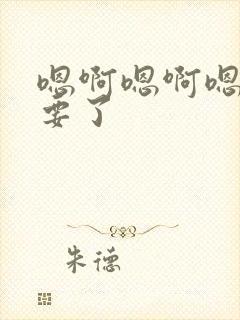 嗯啊嗯啊嗯
要了
朱德